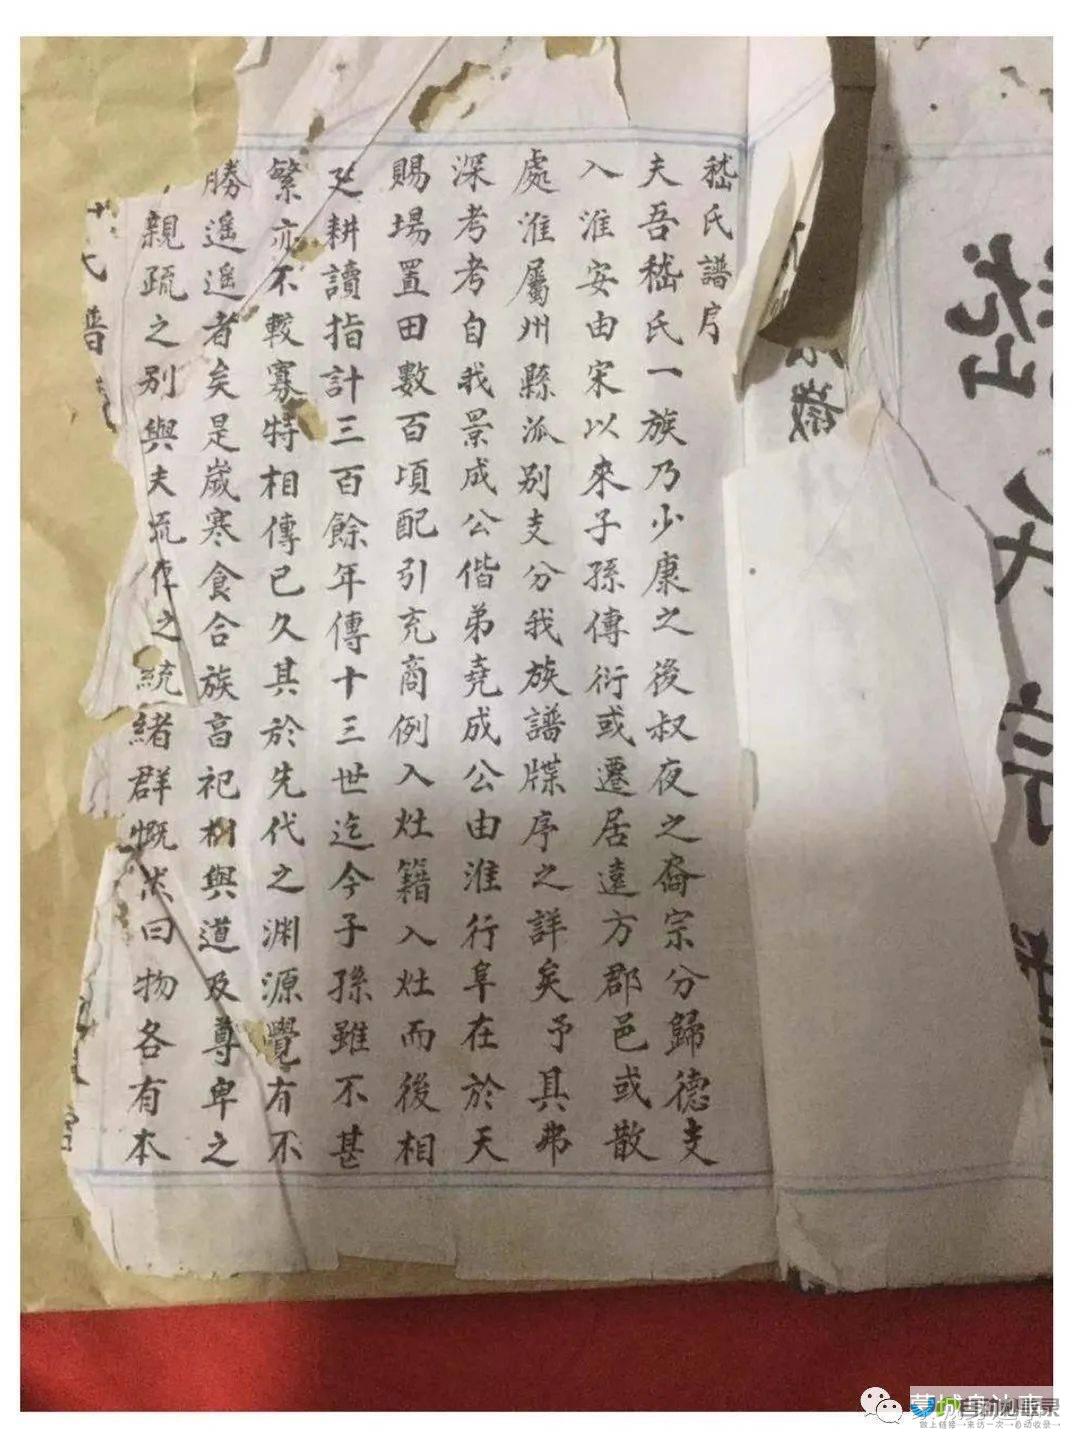 嵇氏譜序
夫吾嵇氏一族乃少康之後叔夜之裔宗分歸德支
入淮安由宋以來子孫傳衍或遷居遠方郡邑或散
處淮屬州縣派别支分我族譜牒序之詳矣予具弗
深考考自我景成公偕弟堯成公由淮行阜在於天
賜場置田數百頃配引充商例入灶籍入灶而後相
耕讀指計三百餘年傳十三世迄今子孫雖不甚
繁亦不較寡特相傳已久其於先代之渊源覺有不
勝遥遥者矣是歲寒食合族亯祀樹與道及尊卑之
親疏之别與夫流之統緒群慨然曰物各有本
氏譜